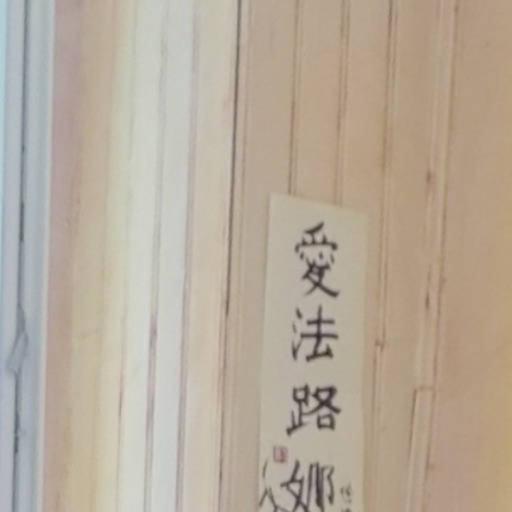 愛法路娜